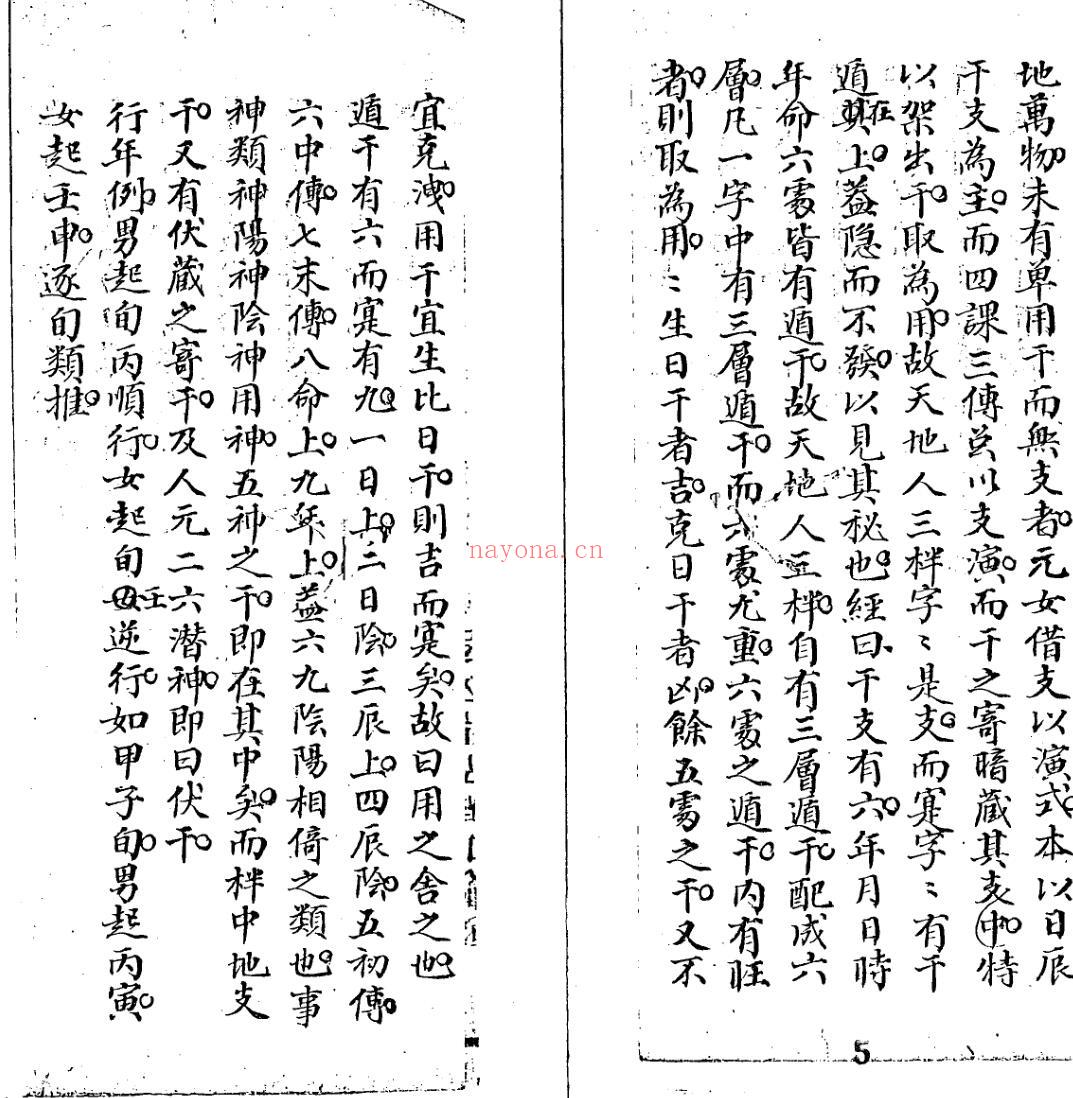 地萬物未有單用干而無支者元女借支以演式本以日辰
干支為主而四課三傳並以支演而干之寄暗藏其支中特
以架出干取為用故天地人三柈字〻是支而寔字〻有干
遁在其上蓋隐而不發以見其秘也經曰干支有六年月日時
年命六處皆有遁干故天地人三柈自有三層遁干配成六
層凡一字中有三層遁干而六處尤重六處之遁干内有旺
者則取為用〻生日干者吉克日干者凶餘五處之干又不
5
宜克洩用干宜生比日干則吉而寔矣故曰用之舍之也
遁干有六而寔有九一日上二日陰三辰上四辰陰五初傳
六中傳七末傳八命上九年上蓋六九陰陽相倚之類也事
神類神陽神陰神用神五神之干即在其中矣而柈中地支
干又有伏藏之寄干及人元二六潜神即曰伏干
行年例男起旬丙順行女起旬壬逆行如甲子旬男起丙寅
女起壬申逐旬類推
nayona.cn